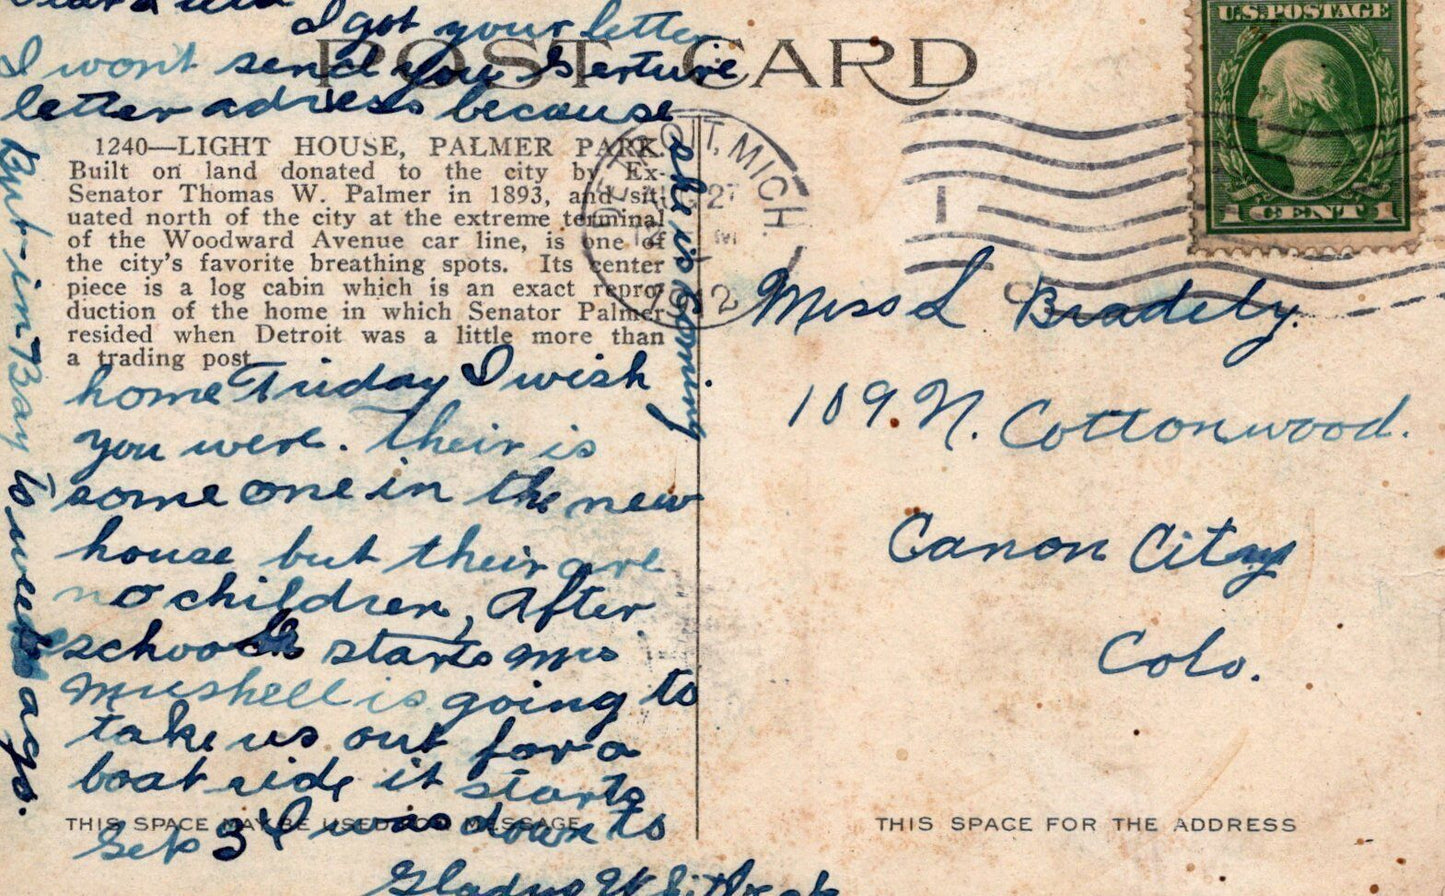 I got your letter
I wont send you Gerture
letter adress because
she is coming
home Friday I wish
you were. Their is
some one in the new
house but their are
no children, After
school starts Mrs
Mushell is going to
take us out for a
boat ride it starts
Sep 3 I was down to
Put-in-Bay to weeks ago.
Gladys
POST CARD
1240—LIGHT HOUSE, PALMER PARK.
Built on land donated to the city by Ex-
Senator Thomas W. Palmer in 1893, and sit-
uated north of the city at the extreme terminal
of the Woodward Avenue car line, is one of
the city's favorite breathing spots. Its center
piece is a log cabin which is an exact repro-
duction of the home in which Senator Palmer
resided when Detroit was a little more than
a trading post.
THIS SPACE MAY BE USED FOR MESSAGE
DETROIT, MICH
27
1912
1
U.S. POSTAGE
1 CENT 1
Miss L Bradely.
109 N. Cottonwood.
Canon City
Colo.
THIS SPACE FOR THE ADDRESS